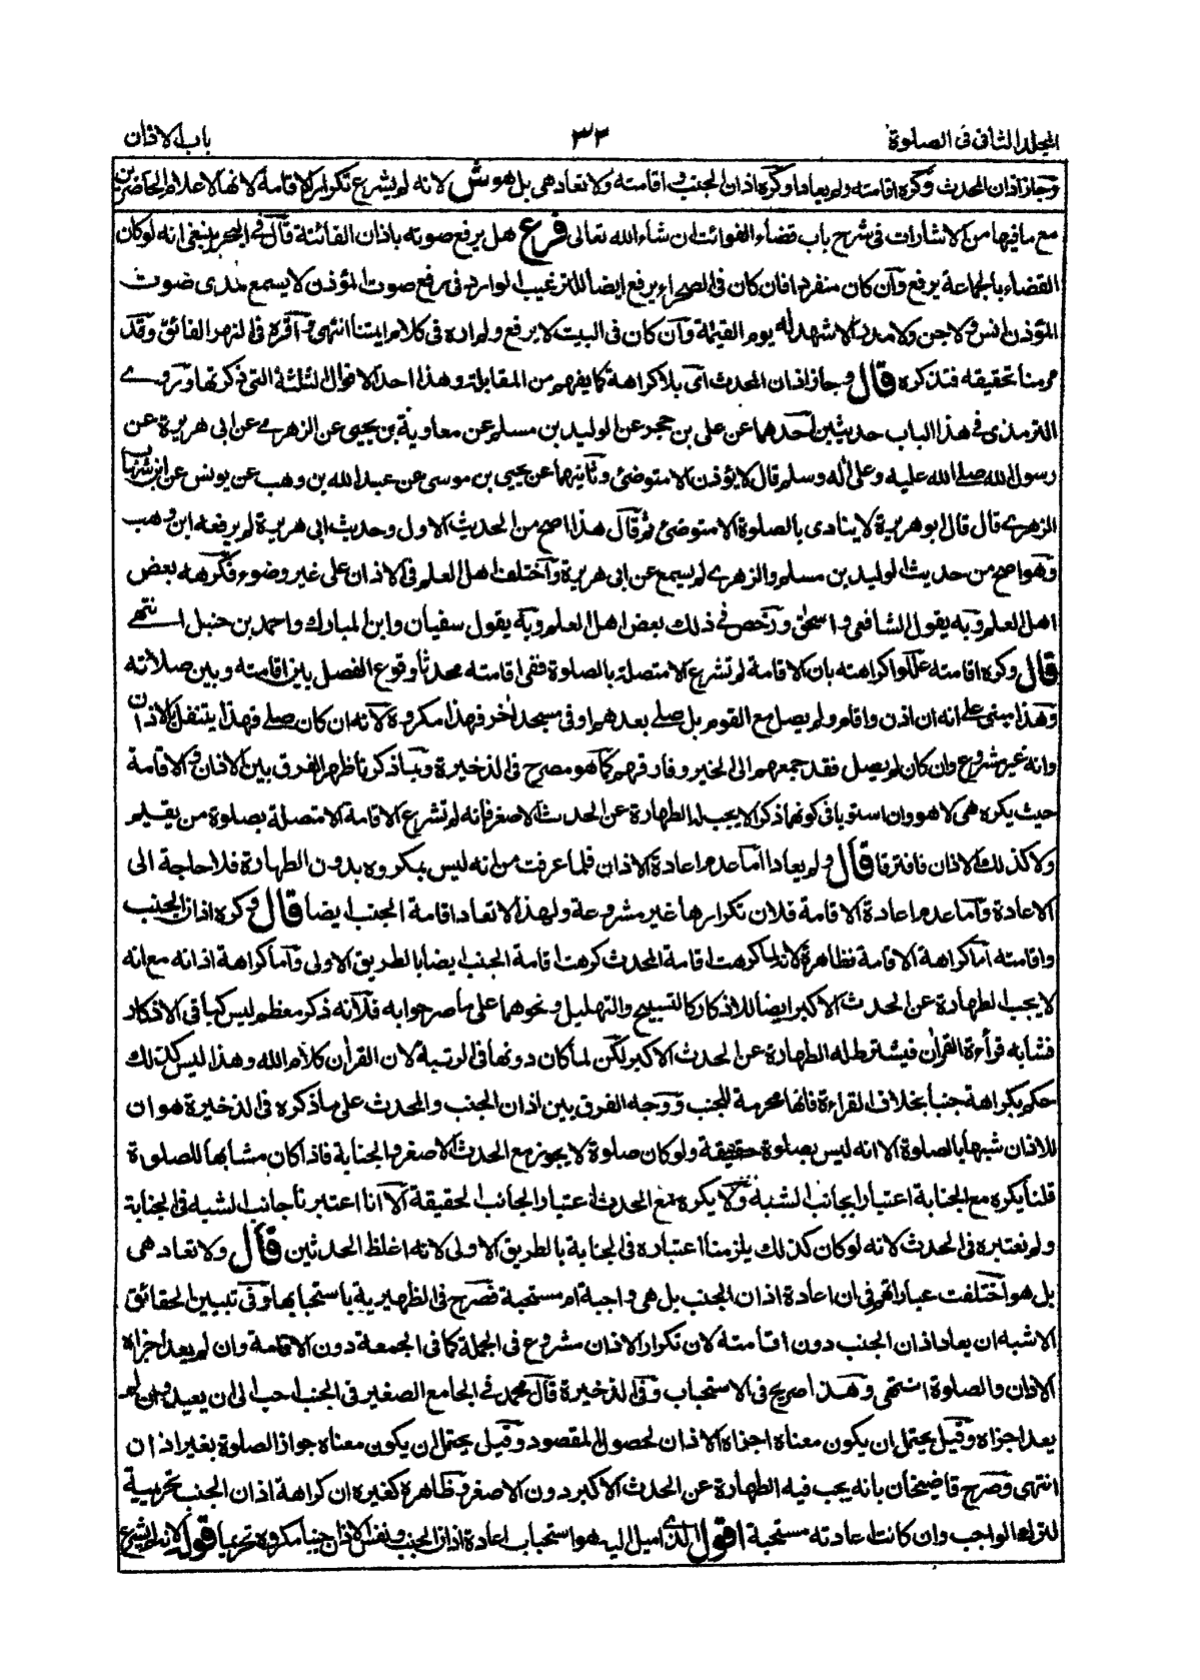 المجلد الثاني في الصلوة ٣٢ باب الاذان
وجاز اذان المحدث وكره اقامته ولم يعادا وكره اذان الجنب واقامته ولا تعاد هي بل هو ش لانه لم يشرع تكرار الاقامة لانها لاعلام الحاضرين
مع ما فيها من الاشارات في شرح باب قضاء الفوائت ان شاء الله تعالى فرع هل يرفع صوته باذان الفائتة قال في البحر ينبغي انه لو كان
القضاء بالجماعة يرفع وان كان منفردا فان كان في الصحراء يرفع ايضا للترغيب الوارد في رفع صوت المؤذن لا يسمع مدى صوت
المؤذن انس ولا جن ولا مدر الا شهد له يوم القيمة وان كان في البيت لا يرفع ولم اره في كلام ايمتنا انتهى واقره في النهر الفائق وقد
مر منا تحقيقه فتذكره قال وجاز اذان المحدث اي بلا كراهة كما يفهم من المقابلة وهذا احد الاقوال الثلثة التي ذكرتها وروى
الترمذي في هذا الباب حديثين احدهما عن علي بن حجر عن الوليد بن مسلم عن معاوية بن يحيى عن الزهري عن ابي هريرة عن
رسول الله صلى الله عليه وعلى اله وسلم قال لا يؤذن الا متوضئ وثانيهما عن يحيى بن موسى عن عبد الله بن وهب عن يونس عن ابن شهاب
الزهري قال قال ابو هريرة لا ينادى بالصلوة الا متوضئ ثم قال هذا اصح من الحديث الاول وحديث ابي هريرة لم يرفعه ابن وهب
وهو اصح من حديث الوليد بن مسلم والزهري لم يسمع عن ابي هريرة واختلف اهل العلم في الاذان على غير وضوء فكرهه بعض
اهل العلم وبه يقول الشافعي واسحق ورخص في ذلك بعض اهل العلم وبه يقول سفيان وابن المبارك واحمد بن حنبل انتهى
قال وكره اقامته عللوا كراهته بان الاقامة لم تشرع الا متصلة بالصلوة ففي اقامته محدثا وقوع الفصل بين اقامته وبين صلاته
وهذا مبني على انه ان اذن واقام ولم يصل مع القوم بل صلى بعدهم او في مسجد اخر فهذا مكروه لانه ان كان صلى فهذا يتنفل بالاذان
وانه غير مشروع وان كان لم يصل فقد جمعهم الى الخير وفارقهم كما هو مصرح في الذخيرة وبما ذكرنا ظهر الفرق بين الاذان والاقامة
حيث يكره هي لا هو وان استويا في كونهما ذكرا لا يجب له الطهارة عن الحدث الاصغر فانه لم تشرع الاقامة الا متصلة بصلوة من يقيم
ولا كذلك الاذان فافترقا قال ولم يعادا اما عدم اعادة الاذان فلما عرفت من انه ليس بمكروه بدون الطهارة فلا حاجة الى
الاعادة واما عدم اعادة الاقامة فلان تكرارها غير مشروعة ولهذا لا تعاد اقامة الجنب ايضا قال وكره اذان الجنب
واقامته اما كراهة الاقامة فظاهرة لانه لما كرهت اقامة المحدث كرهت اقامة الجنب ايضا بالطريق الاولى واما كراهة اذانه مع انه
لا يجب الطهارة عن الحدث الاكبر ايضا للاذكار كالتسبيح والتهليل ونحوهما على ما صر جوابه فلانه ذكر معظم ليس كباقي الاذكار
فشابه قرأءة القران فيشترط له الطهارة عن الحدث الاكبر لكن لما كان دونها في الرتبة لان القران كلام الله وهذا ليس كذلك
حكم بكراهة جنبا بخلاف القراءة فانها محرمة للجنب ووجه الفرق بين اذان الجنب والمحدث على ما ذكره في الذخيرة هو ان
للاذان شبها بالصلوة الا انه ليس بصلوة حقيقة ولو كان صلوة لا يجوز مع الحدث الاصغر والجنابة فاذا كان مشابها للصلوة
قلنا يكره مع الجنابة اعتبارا بجانب الشبه ولا يكره مع الحدث اعتبارا لجانب الحقيقة الا انا اعتبرنا جانب الشبه في الجنابة
ولم نعتبره في الحدث لانه لو كان كذلك يلزمنا اعتباره في الجنابة بالطريق الاولى لانه اغلظ الحدثين قال ولا تعاد هي
بل هو اختلفت عباراتهم في ان اعادة اذان الجنب بل هي واجبة ام مستحبة فصرح في الظهيرية باستحبابها وفي تبيين الحقائق
الاشبه ان يعاد اذان الجنب دون اقامته لان تكرار الاذان مشروع في الجملة كما في الجمعة دون الاقامة وان لم يعد اجزاه
الاذان والصلوة انتهى وهذا صريح في الاستحباب وفي الذخيرة قال محمد في الجامع الصغير في الجنب احب الى ان يعيد وان لم
يعد اجزاه وقيل يحتمل ان يكون معناه اجزاه الاذان لحصول المقصود وقيل يحتمل ان يكون معناه جواز الصلوة بغير اذان
انتهى وصرح قاضيخان بانه يجب فيه الطهارة عن الحدث الاكبر دون الاصغر وظاهره كغيره ان كراهة اذان الجنب تحريمية
لتركه الواجب وان كانت اعادته مستحبة اقول الذي اميل اليه هو استحباب اعادة اذان الجنب ونفس الاذان جنبا مكروه تحريما قوله لانه لم يشرع